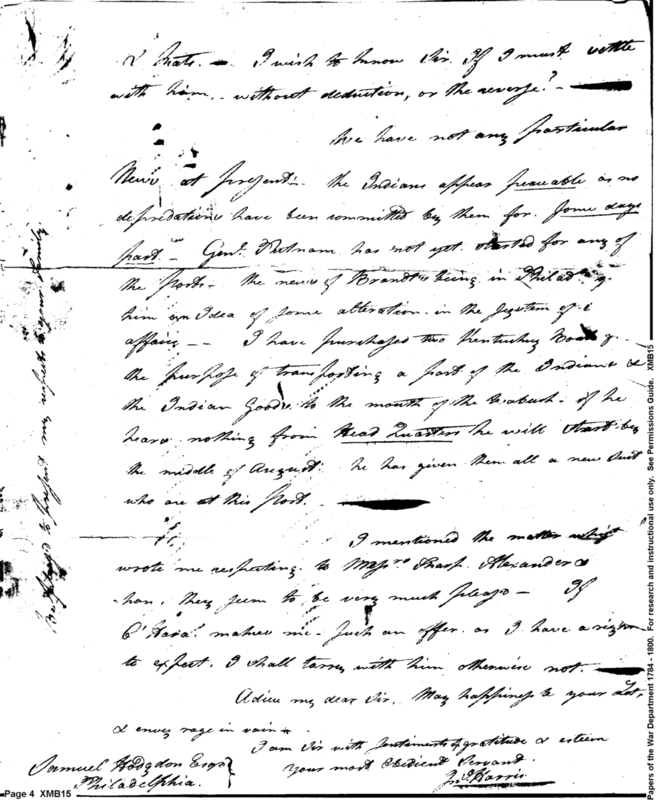 & Mats. — I wish to know Sir. If I must settle
with him, - without deduction, or the reverse? —
We have not any particular
News at present. - the Indians appear peaceable as no
depredations have been committed by them for some days
past. - Genl. Putnam has not yet started for any of
the Posts - the news of Brandt's being in Philada. g
him an Idea of some alteration in the System of
affairs — I have purchased two Kentucky Boats
the purpose of transporting a part of the Indians &
the Indian Goods to the mouth of the Wabash - if he
hears nothing from Head Quarters he will start by
the middle of August. he has given them all a new Suit
who are at this Post. —
I mentioned the matter
wrote me respecting to Messrs. Sharp. Alexander &
-han. they seem to be very much pleas'd — If
O'Hara makes me - such an offer. as I have a right
to expect, I shall tarry with him otherwise not. —
Adieu my dear Sir, May happiness be your Lot,
& envy rage in vain
I am Sir with sentiments of gratitude & esteem
Your most Obedient Servant
Jno. Harris
Samuel Hodgdon Esqr.
Philadelphia.
to present my respects to your family.
Page 4 XMB15
Papers of the War Department 1784 - 1800. For research and instructional use only. See Permissions Guide. XMB15